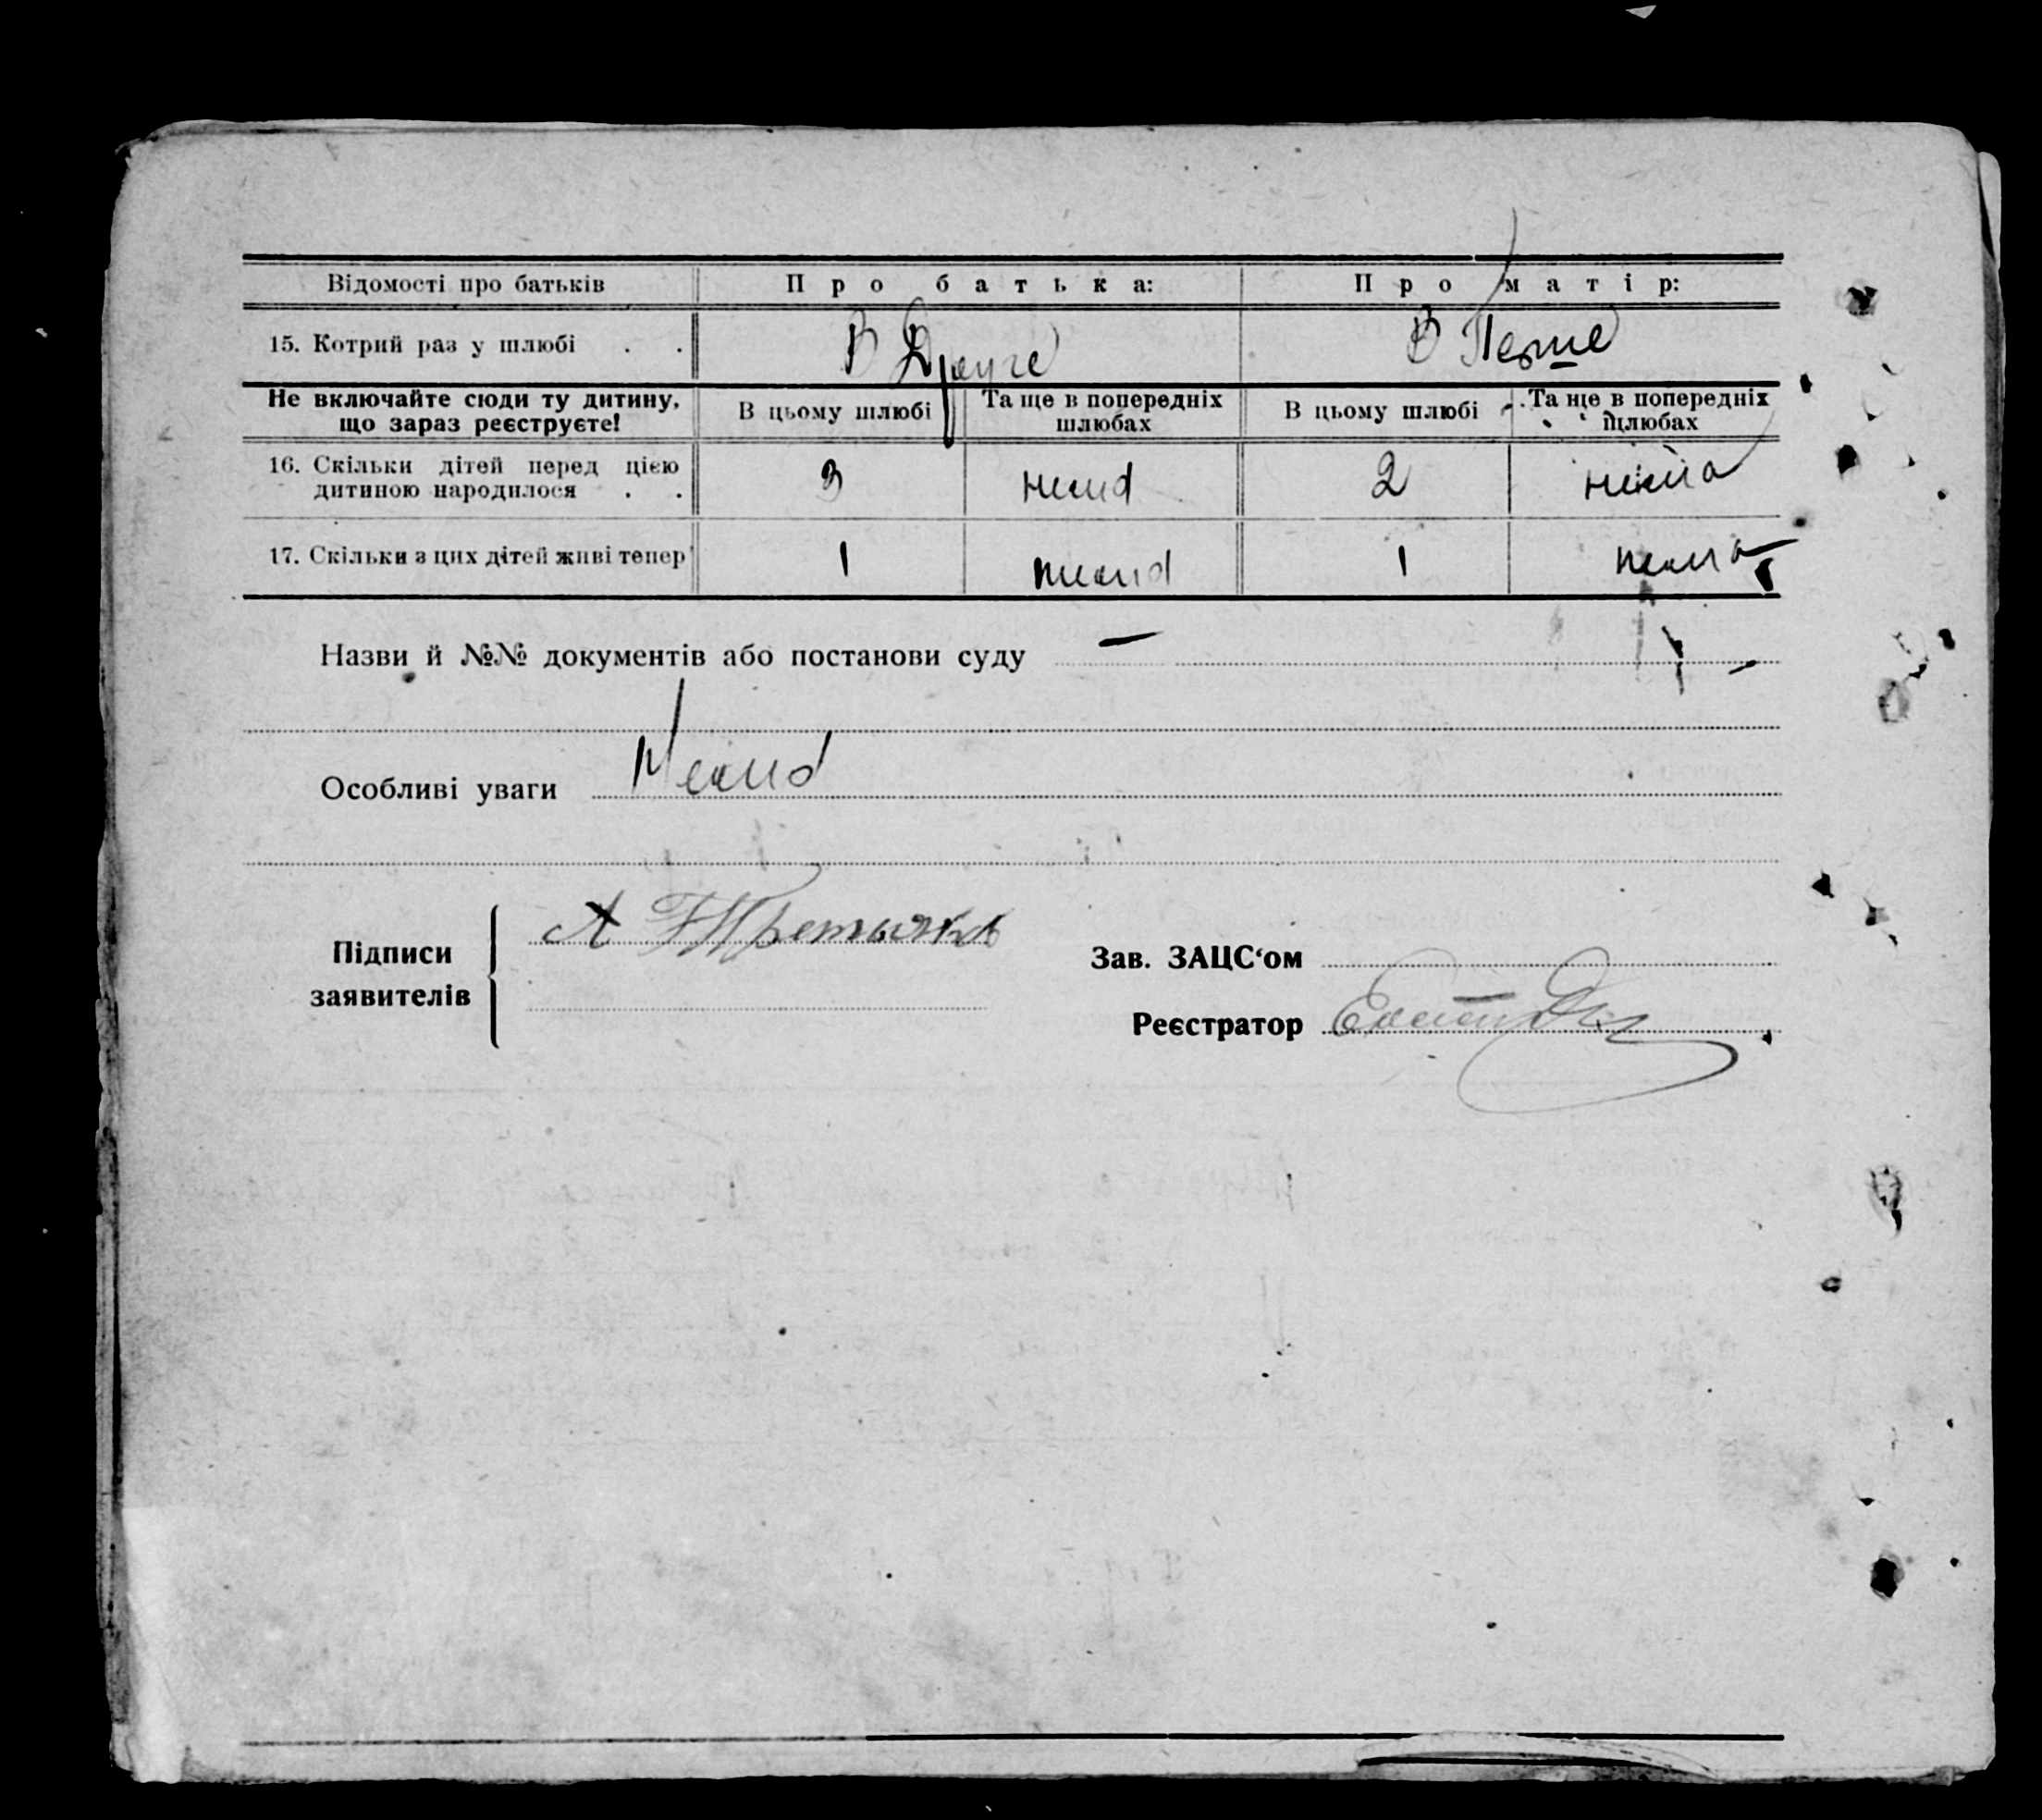 Відомості про батьків Про батька: Про матір:
15. Котрий раз у шлюбі . . В Друге В Перше
Не включайте сюди ту дитину, що зараз реєструєте! В цьому шлюбі Та ще в попередніх шлюбах В цьому шлюбі Та ще в попередніх шлюбах
16. Скільки дітей перед цією
дитиною народилося . . 3 нема 2 нема
17. Скільки з цих дітей живі тепер 1 нема 1 нема
Назви й №№ документів або постанови суду — —
Особливі уваги Нема
Підписи
заявителів
А Третьяков
Зав. ЗАЦС‘ом
Реєстратор